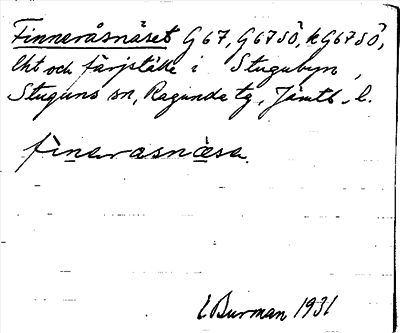 Finneråsnäset G67, G67SÖ, kG67SÖ,
lht och färjställe i Stugubyn,
Stuguns sn, Ragunda tg, Jämtl. l.
finerasnæse.
L Burman 1931